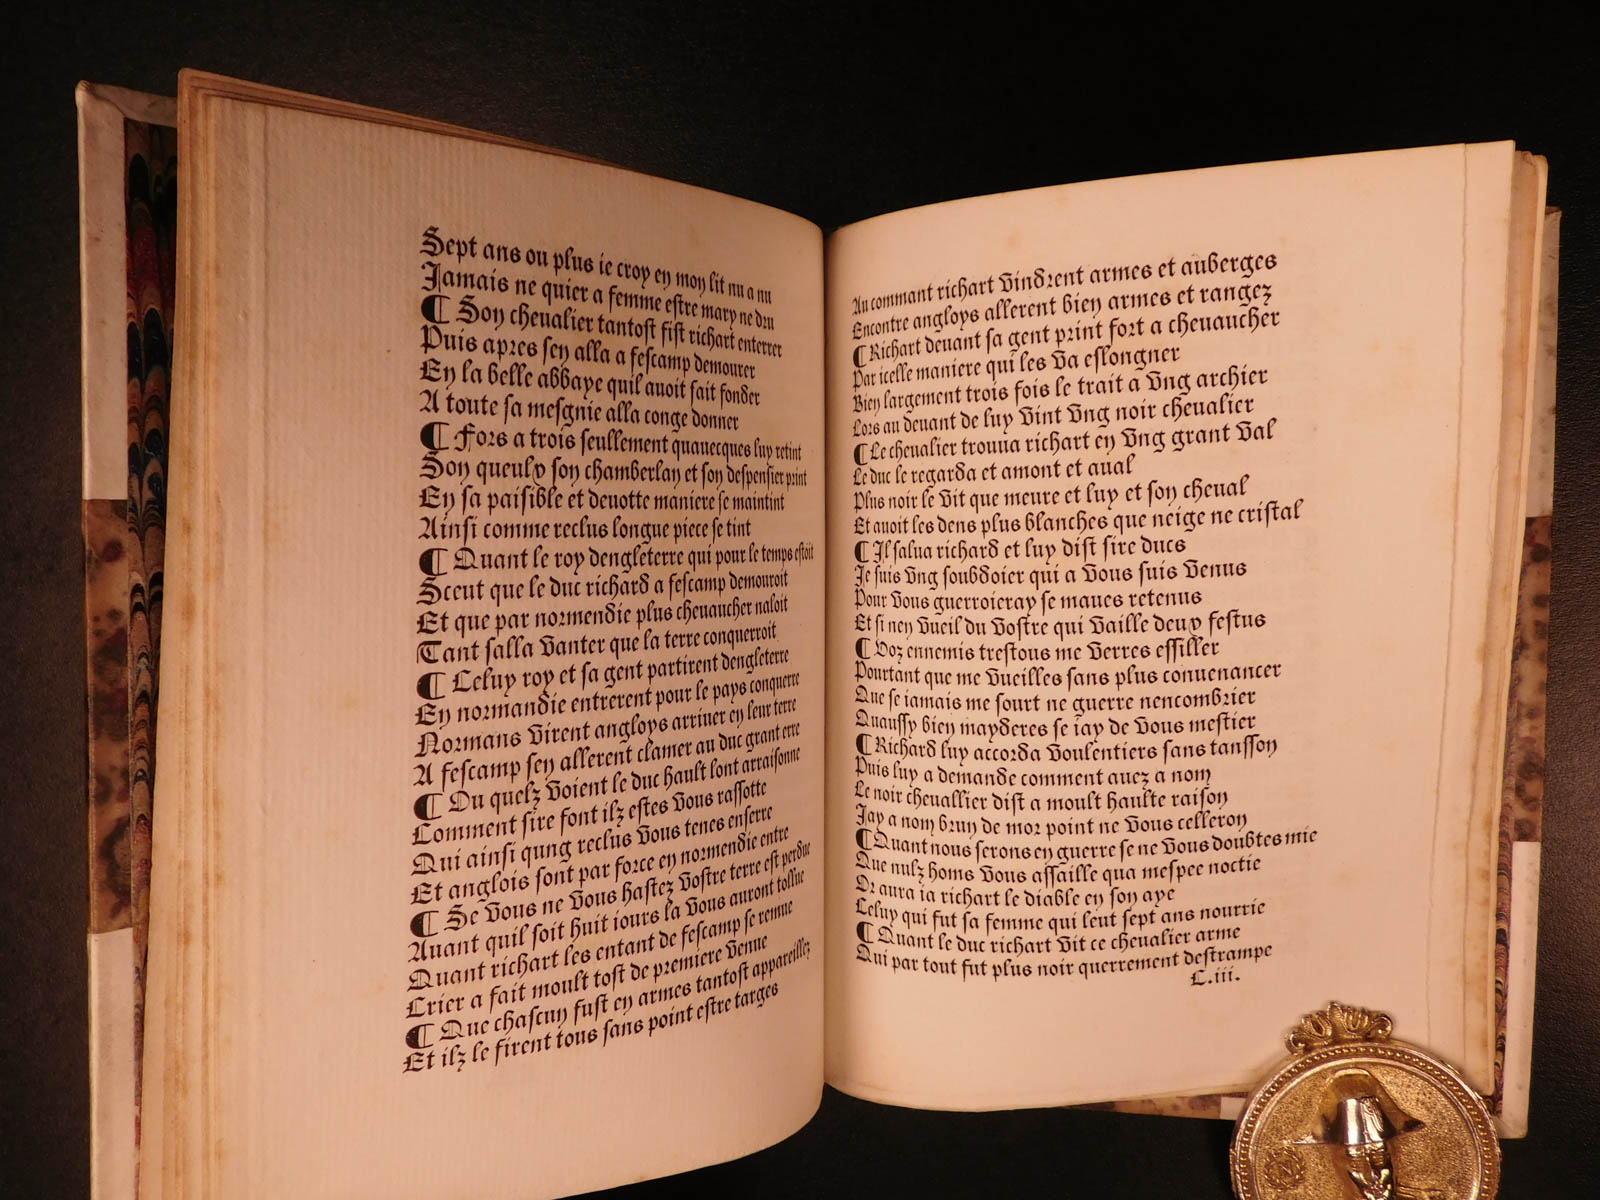 Sept ans ou plus ie croy en moy lit nu a nu
Jamais ne quier a femme estre mary ne dru
¶ Son cheualier tantost fist richart enterrer
Puis apres sen alla a fescamp demourer
En la belle abbaye quil auoit fait fonder
A toute sa mesgnie alla conge donner
¶ Fors a trois seullement quauecques luy retint
Son queuly son chamberlan et son despensier print
En sa paisible et deuotte maniere se maintint
Ainsi comme reclus longue piece se tint
¶ Quant le roy dengleterre qui pour le temps estoit
Sceut que le duc richard a fescamp demouroit
Et que par normendie plus cheuaucher naloit
Tant salla vanter que la terre conquerroit
¶ Celuy roy et sa gent partirent dengleterre
En normandie entrerent pour le pays conquerre
Normans virent angloys arriuer en leur terre
A fescamp sen allerent clamer au duc grant erre
¶ Ou quelz voient le duc hault lont arraisonne
Comment sire font ilz estes vous rassotte
Qui ainsi qung reclus vous tenes enserre
Et anglois sont par force en normendie entre
¶ Se vous ne vous hastez vostre terre est perdue
Auant quil soit huit iours la vous auront tollue
Quant richart les entant de fescamp se remue
Crier a fait moult tost de premiere venue
¶ Que chascun fust en armes tantost appareillez
Et ilz le firent tous sans point estre targes
Au commant richart vindrent armes et auberges
Encontre angloys allerent bien armes et rangez
¶ Richart deuant sa gent print fort a cheuaucher
Par icelle maniere qui les va eslongner
Bien largement trois fois le trait a vng archier
Lors au deuant de luy vint vng noir cheualier
¶ Le cheualier trouua richart en vng grant val
Le duc le regarda et amont et aual
Plus noir le vit que meure et luy et son cheual
Et auoit les dens plus blanches que neige ne cristal
¶ Il salua richard et luy dist sire ducs
Je suis vng soubdoier qui a vous suis venus
Pour vous guerroieray se maues retenus
Et si ney vueil du vostre qui vaille deux festus
¶ Voz ennemis trestous me verres essiller
Pourtant que me vueilles sans plus conuenancer
Que se iamais me sourt ne guerre nencombrier
Quaussy bien mayderes se iay de vous mestier
¶ Richard luy accorda voulentiers sans tansson
Puis luy a demande comment auez a nom
Le noir cheuallier dist a moult haulte raison
Jay a nom brun de mor point ne vous celleron
¶ Quant nous serons en guerre se ne vous doubtes mie
Que nulz homs vous assaille qua mespee noctie
Or aura ia richart le diable en son aye
Celuy qui fut sa femme qui leut sept ans nourrie
¶ Quant le duc richart vit ce cheualier arme
Qui par tout fut plus noir querrement destrampe
C.iii.
N